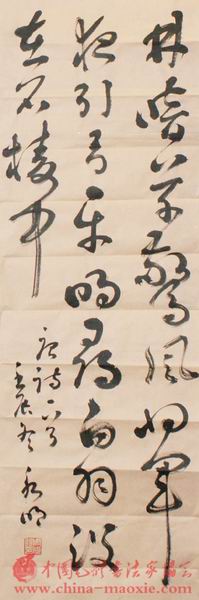 林暗草惊风将军
夜引弓平明寻白羽没
在石棱中
唐诗一首
壬辰冬永明
www.china-maoxie.com